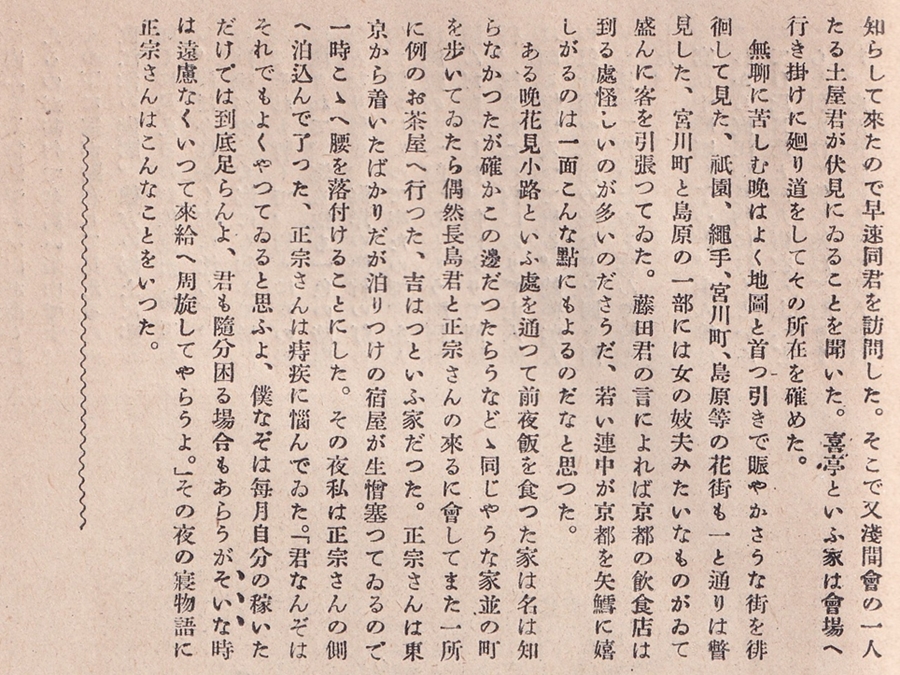 知らして來たので早速同君を訪問した。そこで又淺間會の一人
たる土屋君が伏見にゐることを聞いた。喜亭といふ家は會場へ
行き掛けに廻り道をしてその所在を確めた。
無聊に苦しむ晩はよく地圖と首つ引きで賑やかさうな街を徘
徊して見た、祇園、繩手、宮川町、島原等の花街も一と通りは瞥
見した、宮川町と島原の一部には女の妓夫みたいなものがゐて
盛んに客を引張つてゐた。藤田君の言によれば京都の飮食店は
到る處怪しいのが多いのださうだ、若い連中が京都を矢鱈に嬉
しがるのは一面こんな點にもよるのだなと思つた。
ある晩花見小路といふ處を通つて前夜飯を食つた家は名は知
らなかつたが確かこの邊だつたらうなどゝ同じやうな家並の町
を歩いてゐたら偶然長島君と正宗さんの來るに會してまた一所
に例のお茶屋へ行つた、吉はつといふ家だつた。正宗さんは東
京から着いたばかりだが泊りつけの宿屋が生憎塞つてゐるので
一時こゝへ腰を落付けることにした。その夜私は正宗さんの側
へ泊込んで了つた、正宗さんは痔疾に惱んでゐた。「君なんぞは
それでもよくやつてゐると思ふよ、僕なぞは毎月自分の稼いた
だけでは到底足らんよ、君も隨分困る場合もあらうがそいな時
は遠慮なくいつて來給へ周旋してやらうよ。」その夜の寢物語に
正宗さんはこんなことをいつた。